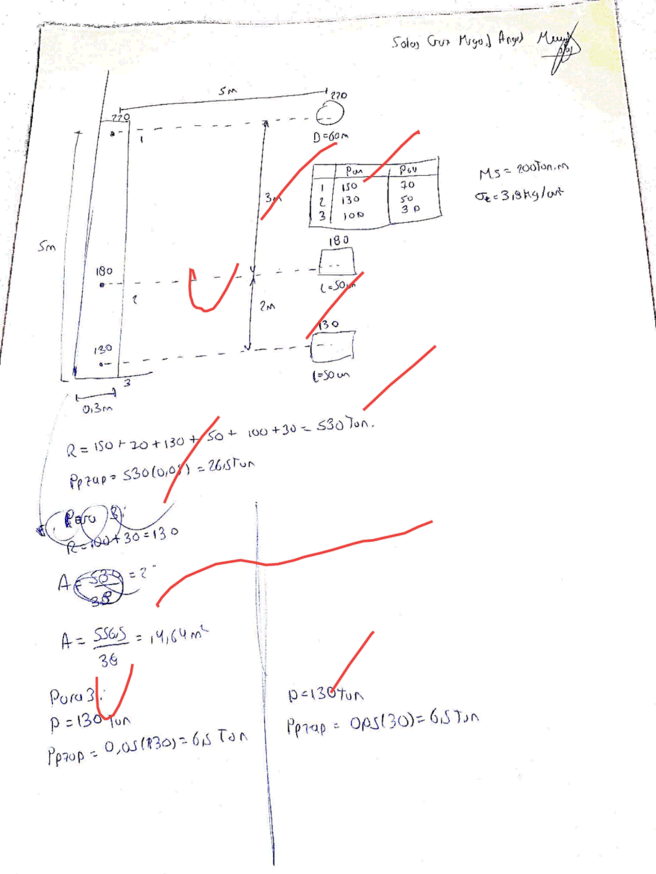 Salas Cruz Miguel Angel
5m
220
220
1
D=60cm
3m
Pcm Pcv
1 150 70
2 130 50
3 100 30
Ms = 200Ton.m
σt = 3,8 kg/cm²
5m
180
180
2
L=50cm
2m
130
130
3
L=50cm
0.3m
R = 150 + 70 + 130 + 50 + 100 + 30 = 530 Ton.
Pprop = 530(0,05) = 26,5 Ton
Para 3:
R = 100 + 30 = 130
A = 530 / 38 = 2
A = 556,5 / 38 = 14,64 m²
Para 3:
P = 130 Ton
Pprop = 0,05(130) = 6,5 Ton
P = 130 Ton
Pprop = 0,05(30) = 6,5 Ton